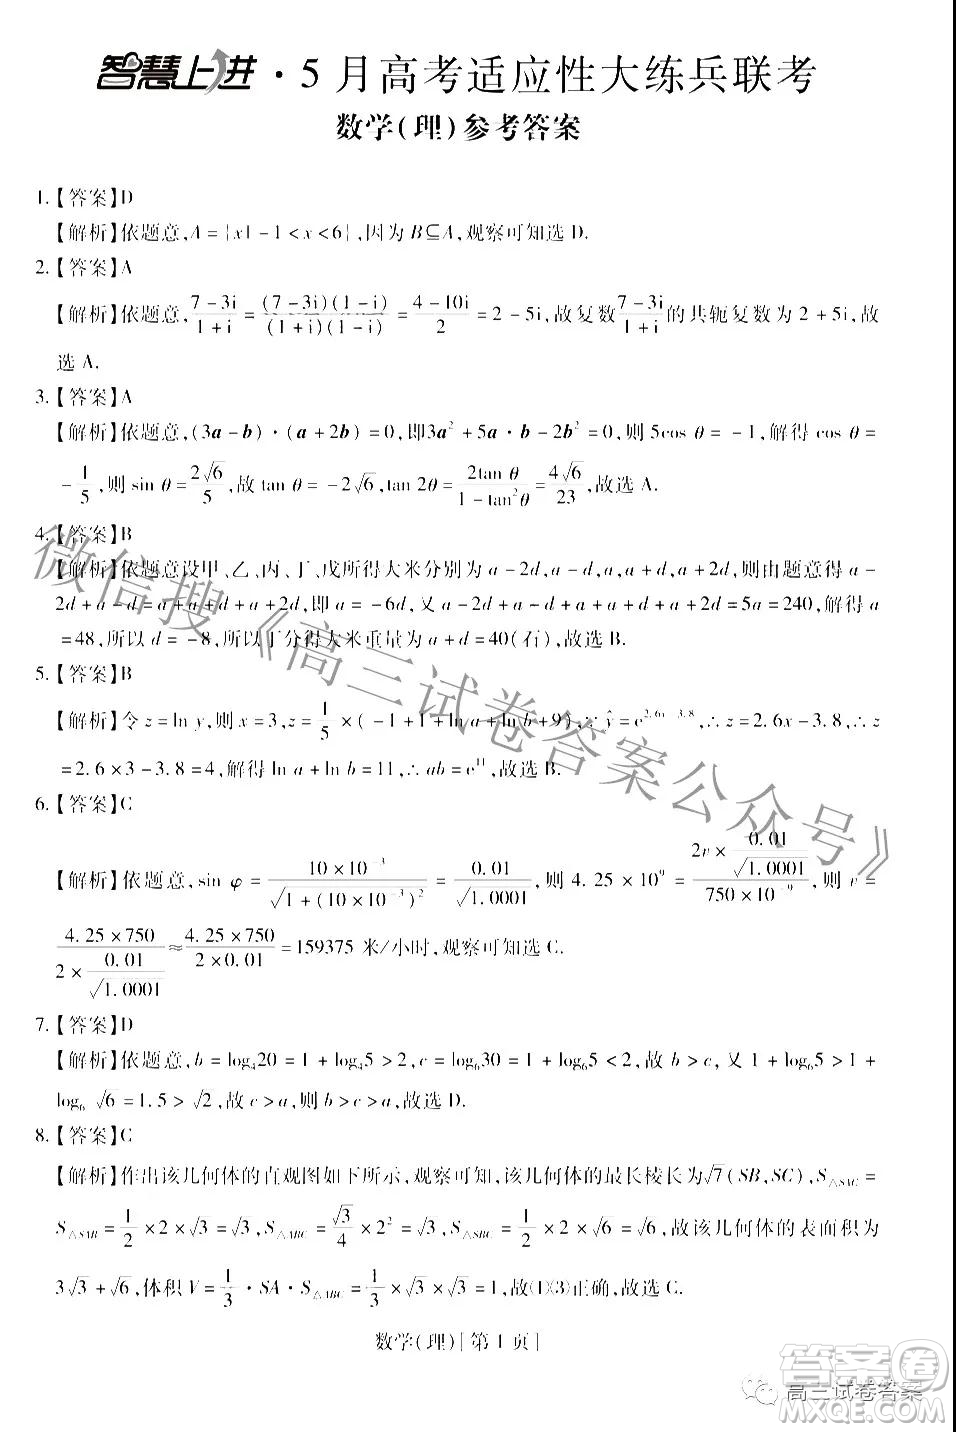 智慧上进·5月高考适应性大练兵联考
数学(理)参考答案
1.【答案】D
【解析】依题意,A={x|-1<x<6},因为B⊆A,观察可知选D.
2.【答案】A
【解析】依题意,(7-3i)/(1+i)=((7-3i)(1-i))/((1+i)(1-i))=(4-10i)/2=2-5i,故复数(7-3i)/(1+i)的共轭复数为2+5i,故
选A.
3.【答案】A
【解析】依题意,(3a-b)·(a+2b)=0,即3a²+5a·b-2b²=0,则5cos θ=-1,解得cos θ=
-1/5,则sin θ=2√6/5,故tan θ=-2√6,tan 2θ=2tan θ/(1-tan²θ)=4√6/23,故选A.
4.【答案】B
【解析】依题意设甲、乙、丙、丁、戊所得大米分别为a-2d,a-d,a,a+d,a+2d,则由题意得a-
2d+a-d=a+a+d+a+2d,即a=-6d,又a-2d+a-d+a+a+d+a+2d=5a=240,解得a
=48,所以d=-8,所以丁分得大米重量为a+d=40(石),故选B.
5.【答案】B
【解析】令z=ln y,则x=3,z=1/5×(-1+1+ln a+ln b+9),∵ŷ=e^(2.6x-3.8),∴z=2.6x-3.8,∴z
=2.6×3-3.8=4,解得ln a+ln b=11,∴ab=e¹¹,故选B.
6.【答案】C
【解析】依题意,sin φ=(10×10⁻³)/√(1+(10×10⁻³)²)=0.01/√1.0001,则4.25×10⁹=(2v×0.01/√1.0001)/(750×10⁻⁹),则v=
(4.25×750)/(2×0.01/√1.0001)≈(4.25×750)/(2×0.01)=159375米/小时,观察可知选C.
7.【答案】D
【解析】依题意,b=log₄20=1+log₄5>2,c=log₆30=1+log₆5<2,故b>c,又1+log₆5>1+
log₆ √6=1.5>√2,故c>a,则b>c>a,故选D.
8.【答案】C
【解析】作出该几何体的直观图如下所示,观察可知,该几何体的最长棱长为√7(SB,SC),S△SAC=
S△SAB=1/2×2×√3=√3,S△ABC=√3/4×2²=√3,S△SBC=1/2×2×√6=√6,故该几何体的表面积为
3√3+√6,体积V=1/3·SA·S△ABC=1/3×√3×√3=1,故(1)(3)正确,故选C.
数学(理)[第1页]
微信搜《高三试卷答案公众号》
高三试卷答案
答案圈
MXQE.COM